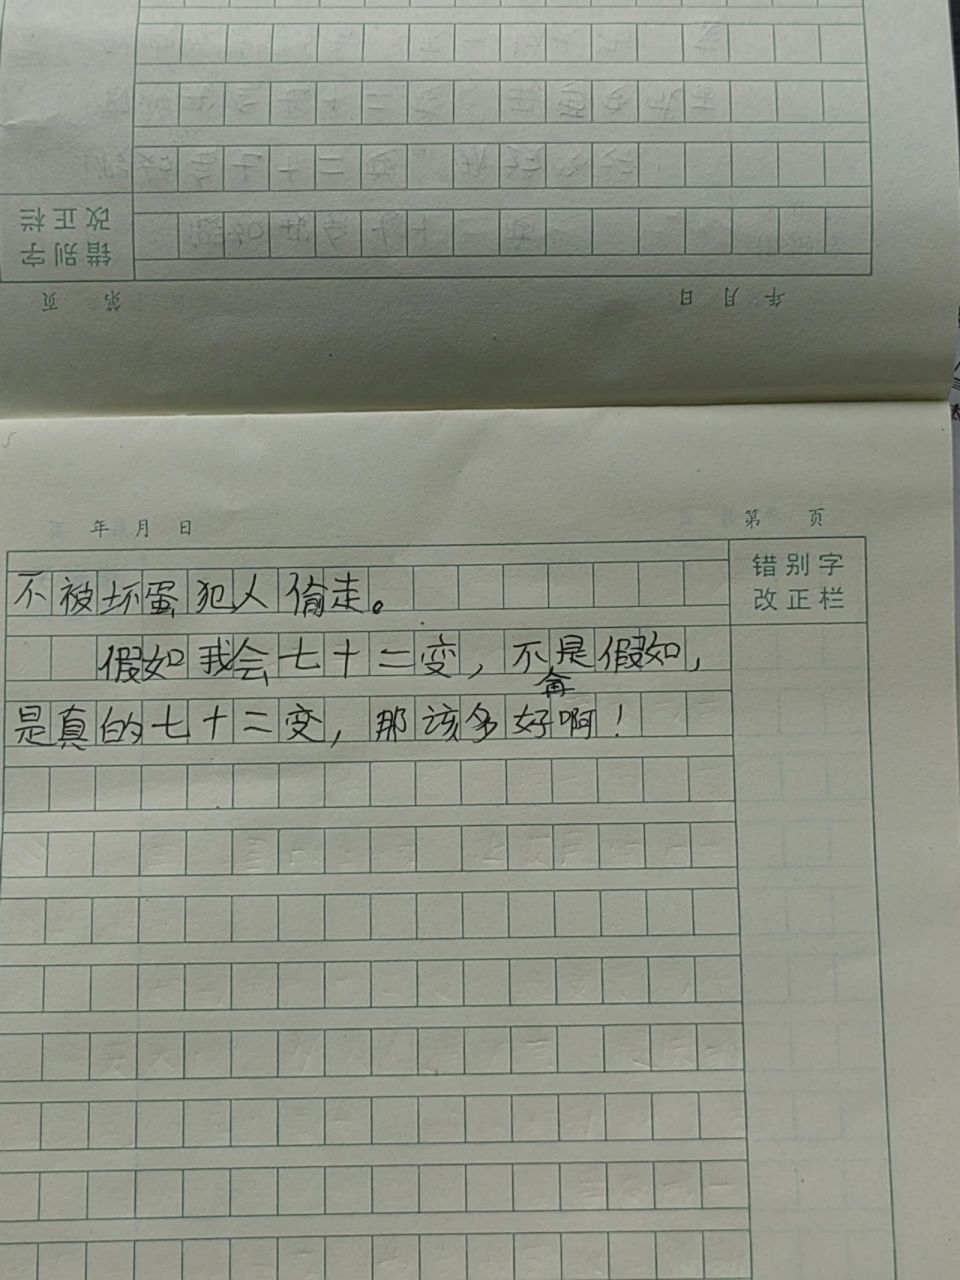 错别字
改正栏
第 页
年 月 日
年 月 日
第 页
错别字
改正栏
不被坏蛋犯人偷走。
假如我会七十二变，不再是假如，
是真的七十二变，那该多好啊！